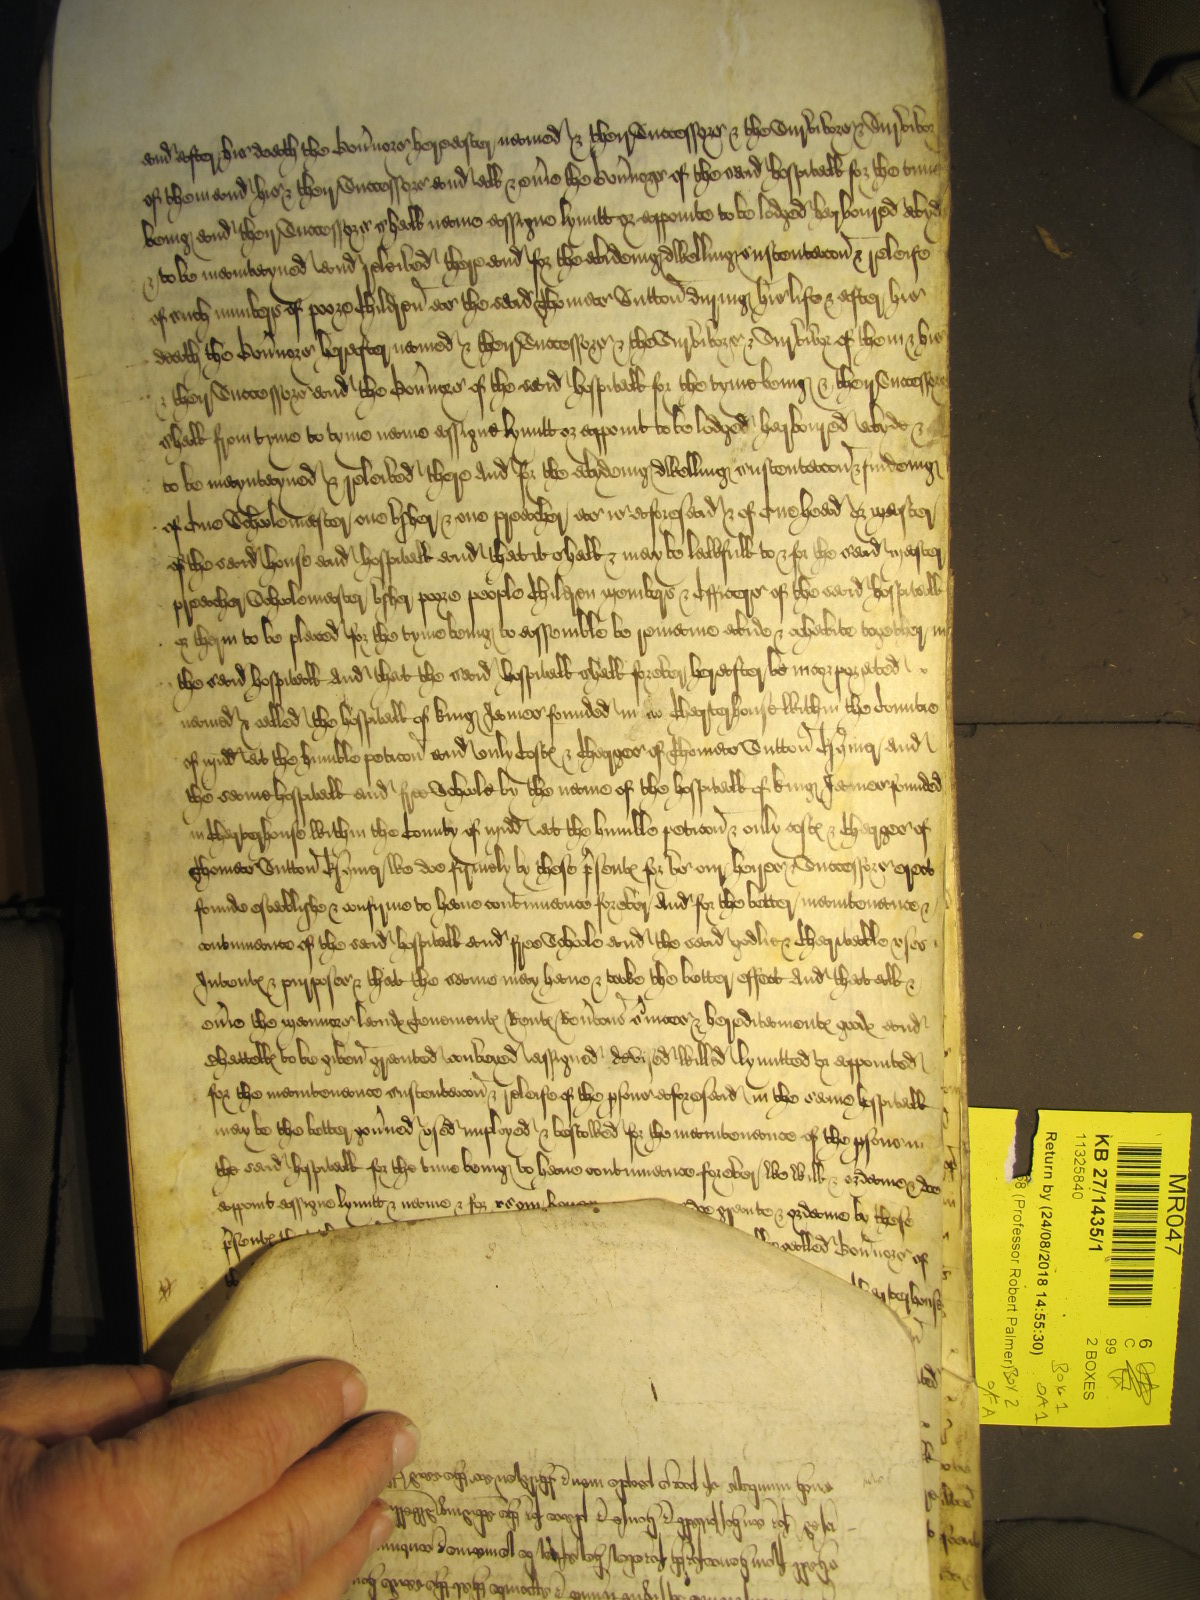 and after his death the Gou'nors hereafter named & their Successors & the Survivors & Survivor
of them and his & their Successors and all & eu'ie the Gou'nors of the said hospitall for the time
being and their Successors shall name assigne lymitt or appointe to be lodged harboured abyde
& to be maintayned and releived there and for the abideing dwelling sustentacon & releife
of such numbers of poore Children as the said Thomas Sutton during his life & after his
death the Gou'nors hereafter named & their Successors & the Survivors & Survivor of them & his
& their Successors and the Gou'nors of the said hospitall for the tyme being & their Successors
shall from tyme to tyme name assigne lymitt or appoint to be lodged harboured abyde &
to be mayntayned & releived there And for the abydeing dwelling sustentacon & findeing
of One Schoolemaster one Vsher & one preacher as is aforesaid & of One head Or Master
of the said house and hospitall and that it shall & may be lawfull to & for the said Master
preacher Schoolemaster Vsher poore people Children Members & Officers of the said hospitall
or therin to be placed for the tyme being to assemble be remaine abide & cohabite together in
the said hospitall And that the said hospitall shall forever hereafter be incorporated
named & called the hospitall of King James founded in Charterhouse within the Countie
of Midd at the humble peticon and only Costs & Charges of Thomas Sutton Esquier And
the same hospitall and free Schoole by the name of the hospitall of King James founded
in Charterhouse within the County of Midd at the humble peticon & only costs & Charges of
Thomas Sutton Esquier We doe firmely by these p'sents for vs our heires & Successors erect
founde establishe & confirme to haue continuance forever And for the better maintenance &
continuance of the said hospitall and free Schoole and the said godlie & Charitable vses
Intents & purposes & that the same may haue & take the better effect And that all &
eu'ie the Mannors lands Tenements Rents Reu'cons S'vices & hereditaments goods and
Chattells to be given graunted conveyed assigned devised willed lymitted or appointed
for the maintenance sustentacon & releife of the p'sons aforesaid in the same hospitall
may be the better gou'ned vsed imployed & bestowed for the maintenance of the p'sons in
the said hospitall for the time being to haue continuance forever We will & ordaine & doe
appoint assigne lymitt & name & for doe graunte & ordaine by these
p'sents called Gou'nors of
Charterhouse
MR047
KB 27/1435/1
11325840
Return by (24/08/2018 14:55:30)
(Professor Robert Palmer)
6
C
99
2 BOXES
Box 1
OA 1
Box 2